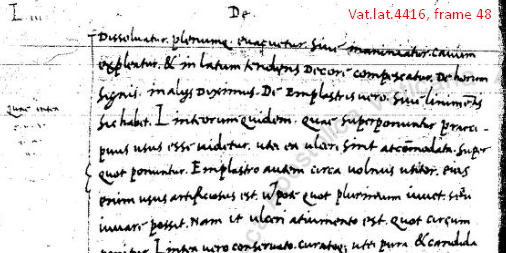 L De Vat.lat.4416, frame 48
Dissoluatur. plenumq. euacuetur. Siue maniniatur. cauum
expleatur. & in latum tendens Decore compescatur. De horum
signis. in alys Diximus. De Emplastris uero. Siue linimentis
sic habet. Linteorum quidem. quae superponuntur praeci-
puus usus esse uidetur. uti ea ulceri sint accomodata. super
quot ponuntur. Emplastro autem circa uolnus utitor. eius
enim usus artificiosus est. quot plurimum iuuet. seu
iuuare possit. Nam ut ulceri atiumento est. quot circum
Lintea uero conseruato. curatoq; uti pura & candida